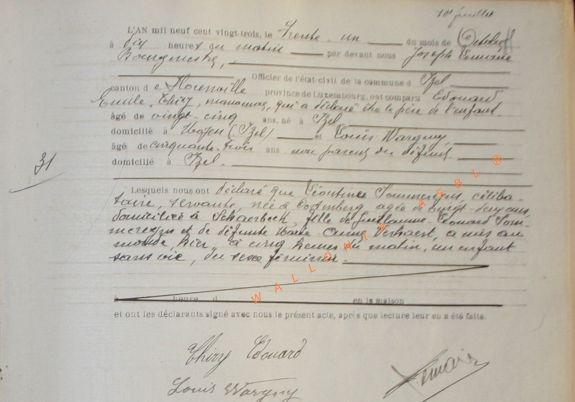 10e feuillet
L'AN mil neuf cent vingt-trois, le Trente-un du mois de Octobre
à dix heures du matin par devant nous Joseph Lemaire
Bourgmestre,
Officier de l'état-civil de la commune d'Izel
canton de Florenville province de Luxembourg, ont comparu Edouard
Emile Thiry, manœuvre, qui a déclaré être père de l'enfant
âgé de vingt-cinq ans, né à Izel
domicilié à (Izel) et Louis Wargny
âgé de cinquante-trois ans non parent du défunt
domicilié à Izel.
31
Lesquels nous ont déclaré que Léontine célibataire,
servante, née à âgée de vingt ans,
domiciliée à Schaerbeek, fille de Guillaume Edouard
et de défunte Marie Verhaert, a mis au
monde, hier, à cinq heures du matin, un enfant
sans vie, du sexe féminin.
WALLONIA ASBL ®
à heure d en la maison
et ont les déclarants signé avec nous le présent acte, après que lecture leur en a été faite.
Thiry Edouard
Louis Wargny
Lemaire